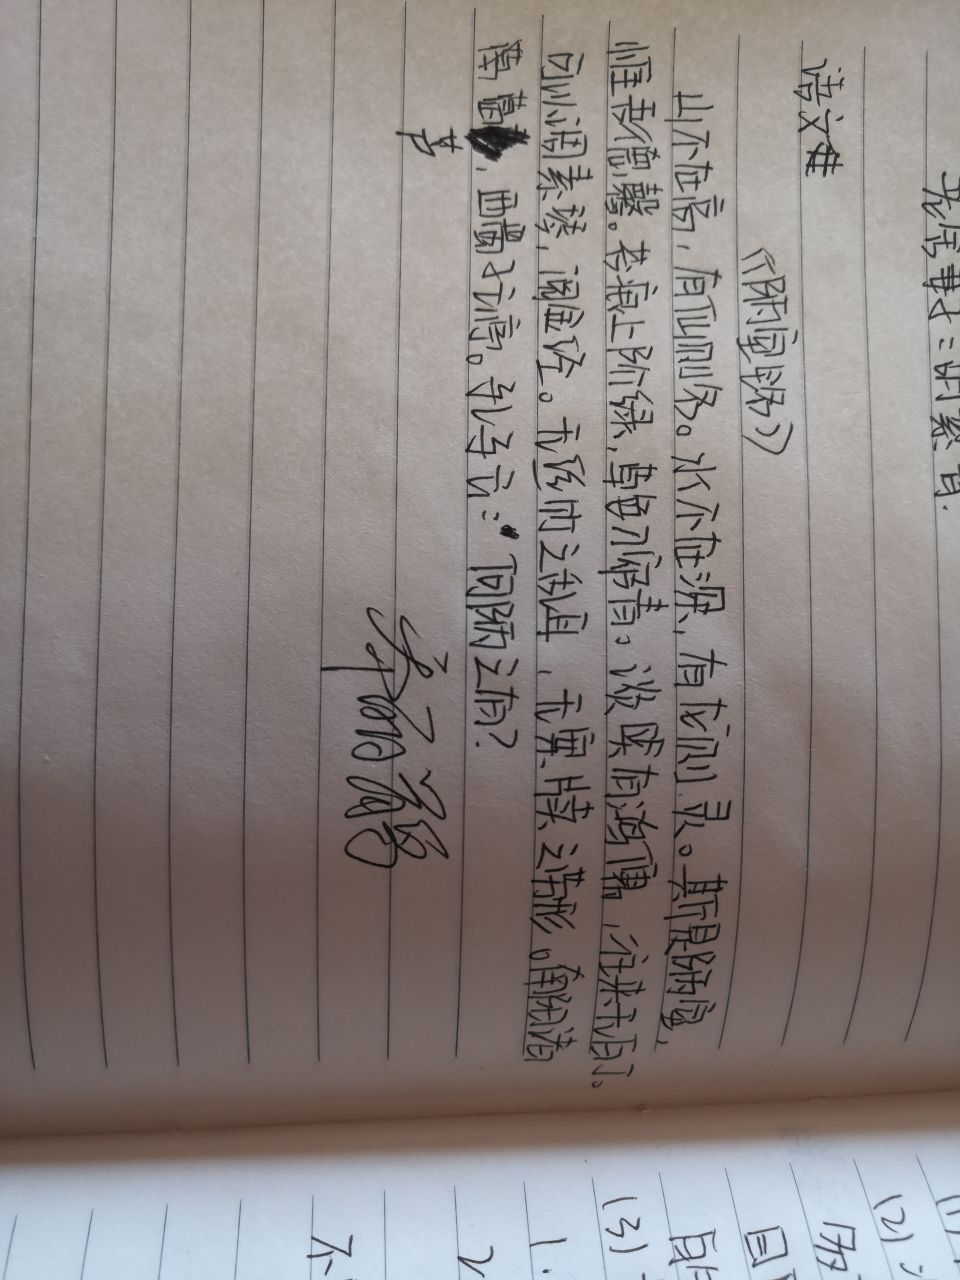 先信费：明察首.
语文
《陋室铭》
山不在高，有仙则名。水不在深，有龙则灵。斯是陋室，
惟吾德馨。苔痕上阶绿，草色入帘青。谈笑有鸿儒，往来无白丁。
可以调素琴，阅金经。无丝竹之乱耳，无案牍之劳形。南阳诸
葛，西蜀子云亭。孔子云：何陋之有？
(1)
(2)
目
(3)
1.
2
不